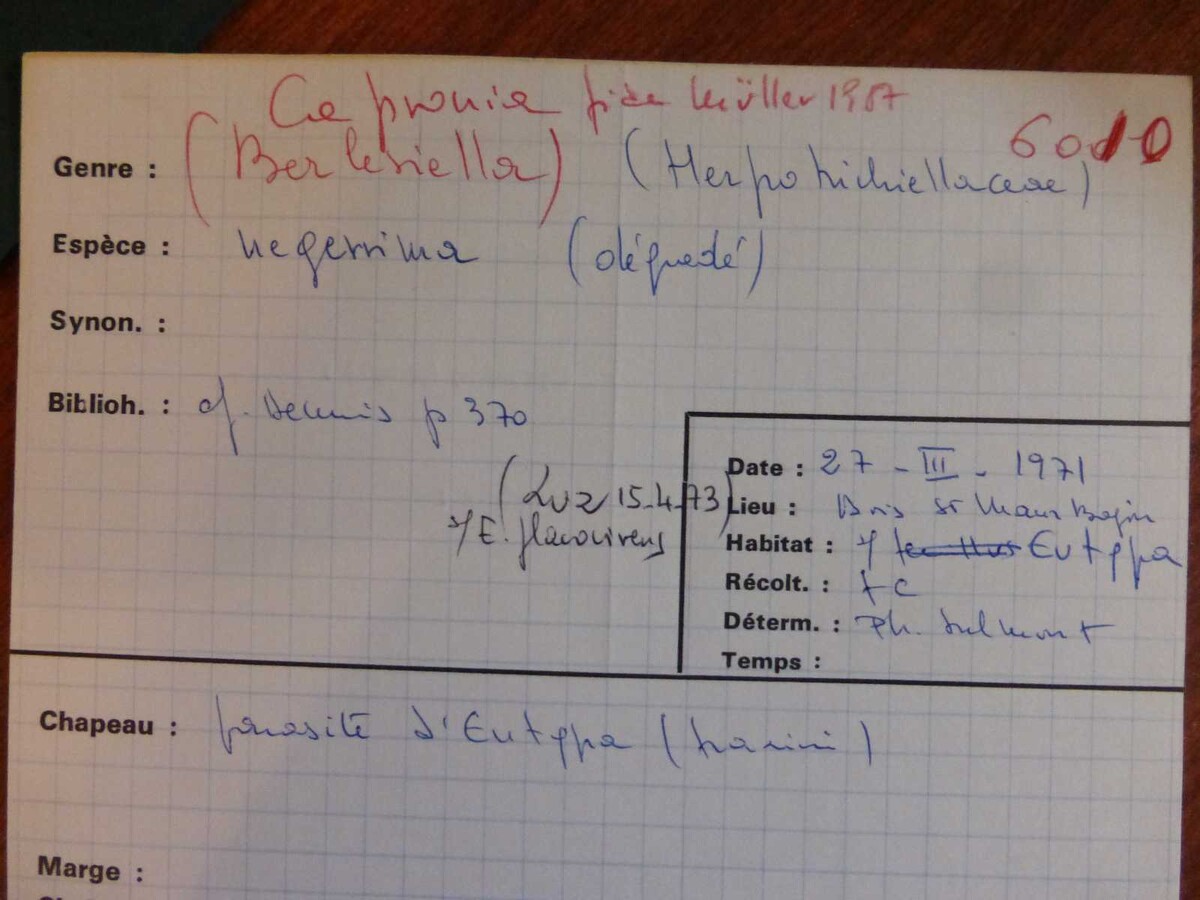 Capronia fide Müller 1987
6010
Genre : (Berlesiella) (Herpotrichiellaceae)
Espèce : negerrima (dégradé)
Synon. :
Biblioh. : cf. Dennis p 370
(Luz 15-4-73)
s/ E. flavovirens
Date : 27 - III - 1971
Lieu : Bois St Maur
Habitat : s/ Eutypa
Récolt. :
Déterm. : Ph.
Temps :
Chapeau : parasite d'Eutypa
Marge :